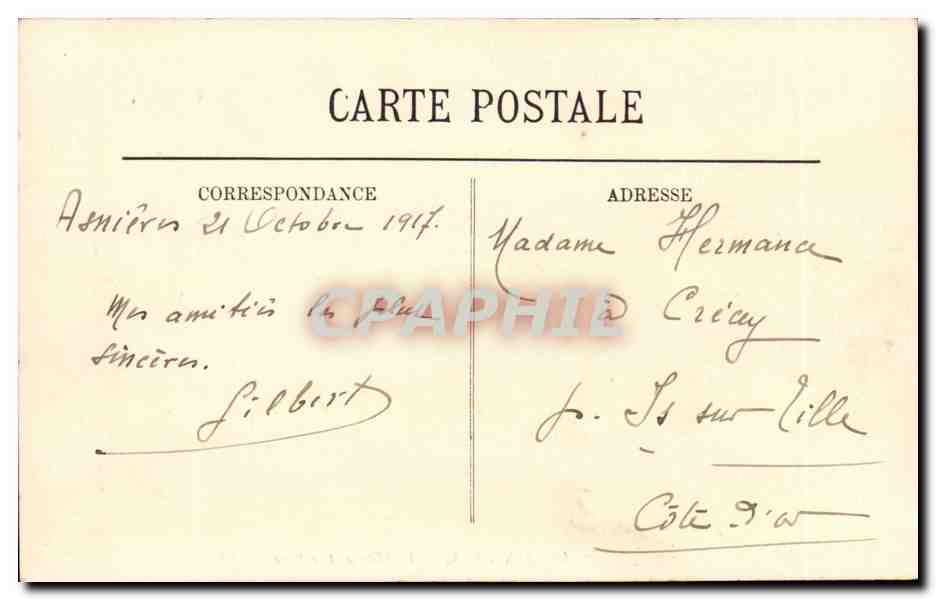 CARTE POSTALE
CORRESPONDANCE
Asnières 21 Octobre 1917.
Mes amitiés les plus
sincères.
Gilbert
ADRESSE
Madame Hermance
à Crécey
p. Is sur Tille
Côte d'or
CPAPHIL